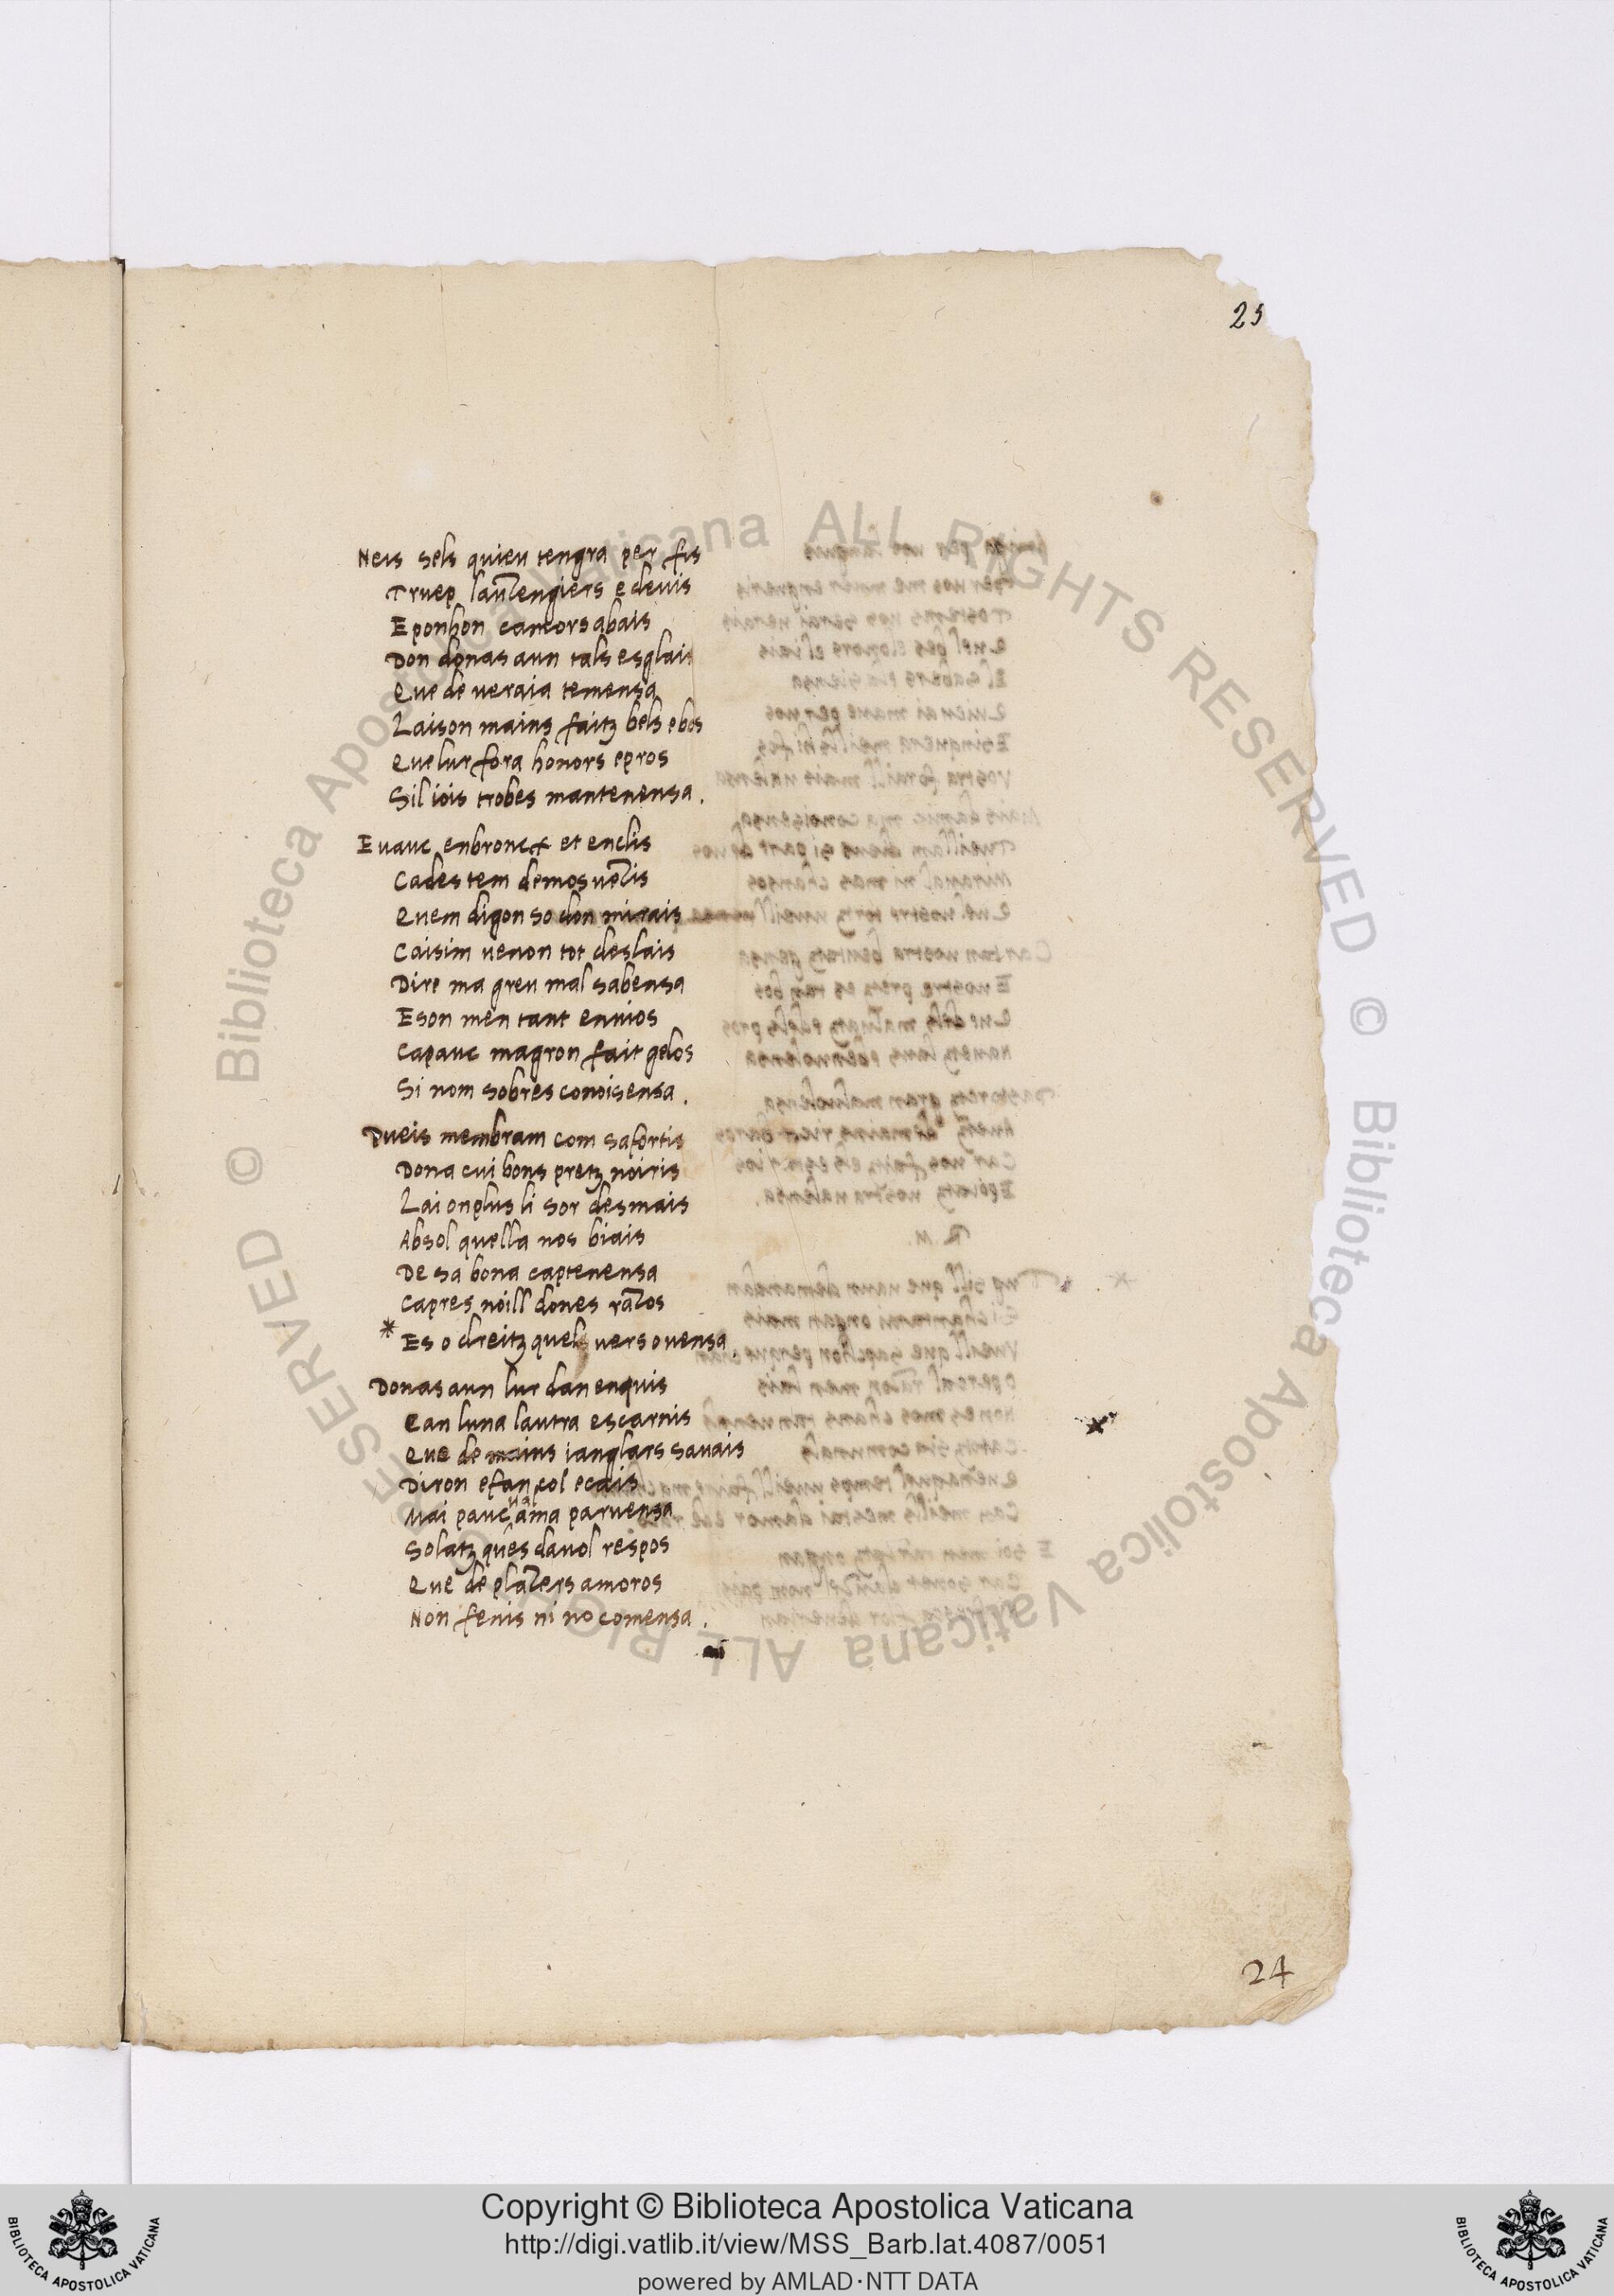 25
Neis sels quieu tengra per fis
Truep lauzengiers e devis
E ponhon camors abais
Don donas aun tals esglais
Que de ueraia temensa
Laison mains faitz bels e bos
Que lur fora honors e pros
Sil iois trobes mantenensa.
E uauc enbroncx et enclis
Cades tem demos uezis
Quem digon so don mirais
Caisim uenon tot deslais
Dire ma greu mal sabensa
E son men tant enuios
Capauc magron fait gelos
Si nom sobres conoisensa.
Pueis membram com safortis
Dona cui bons pretz noiris
Lai on plus li sor desmais
Ab sol quella nos biais
De sa bona captenensa
Capres noill dones razos
* Es o dreitz quels uers ouensa.
Donas aun lur dan enquis
Can luna lautra escarnis
Que de mains ianglars sauais
Diron e fan col e cais
Mai pauc ual ama paruensa
Solatz ques dauol respos
Que de plazers amoros
Non fenis ni no comensa.
24
© Biblioteca Apostolica Vaticana ALL RIGHTS RESERVED © Biblioteca Apostolica Vaticana ALL RIGHTS RESERVED
Copyright © Biblioteca Apostolica Vaticana
http://digi.vatlib.it/view/MSS_Barb.lat.4087/0051
powered by AMLAD·NTT DATA
BIBLIOTECA APOSTOLICA VATICANA
BIBLIOTECA APOSTOLICA VATICANA